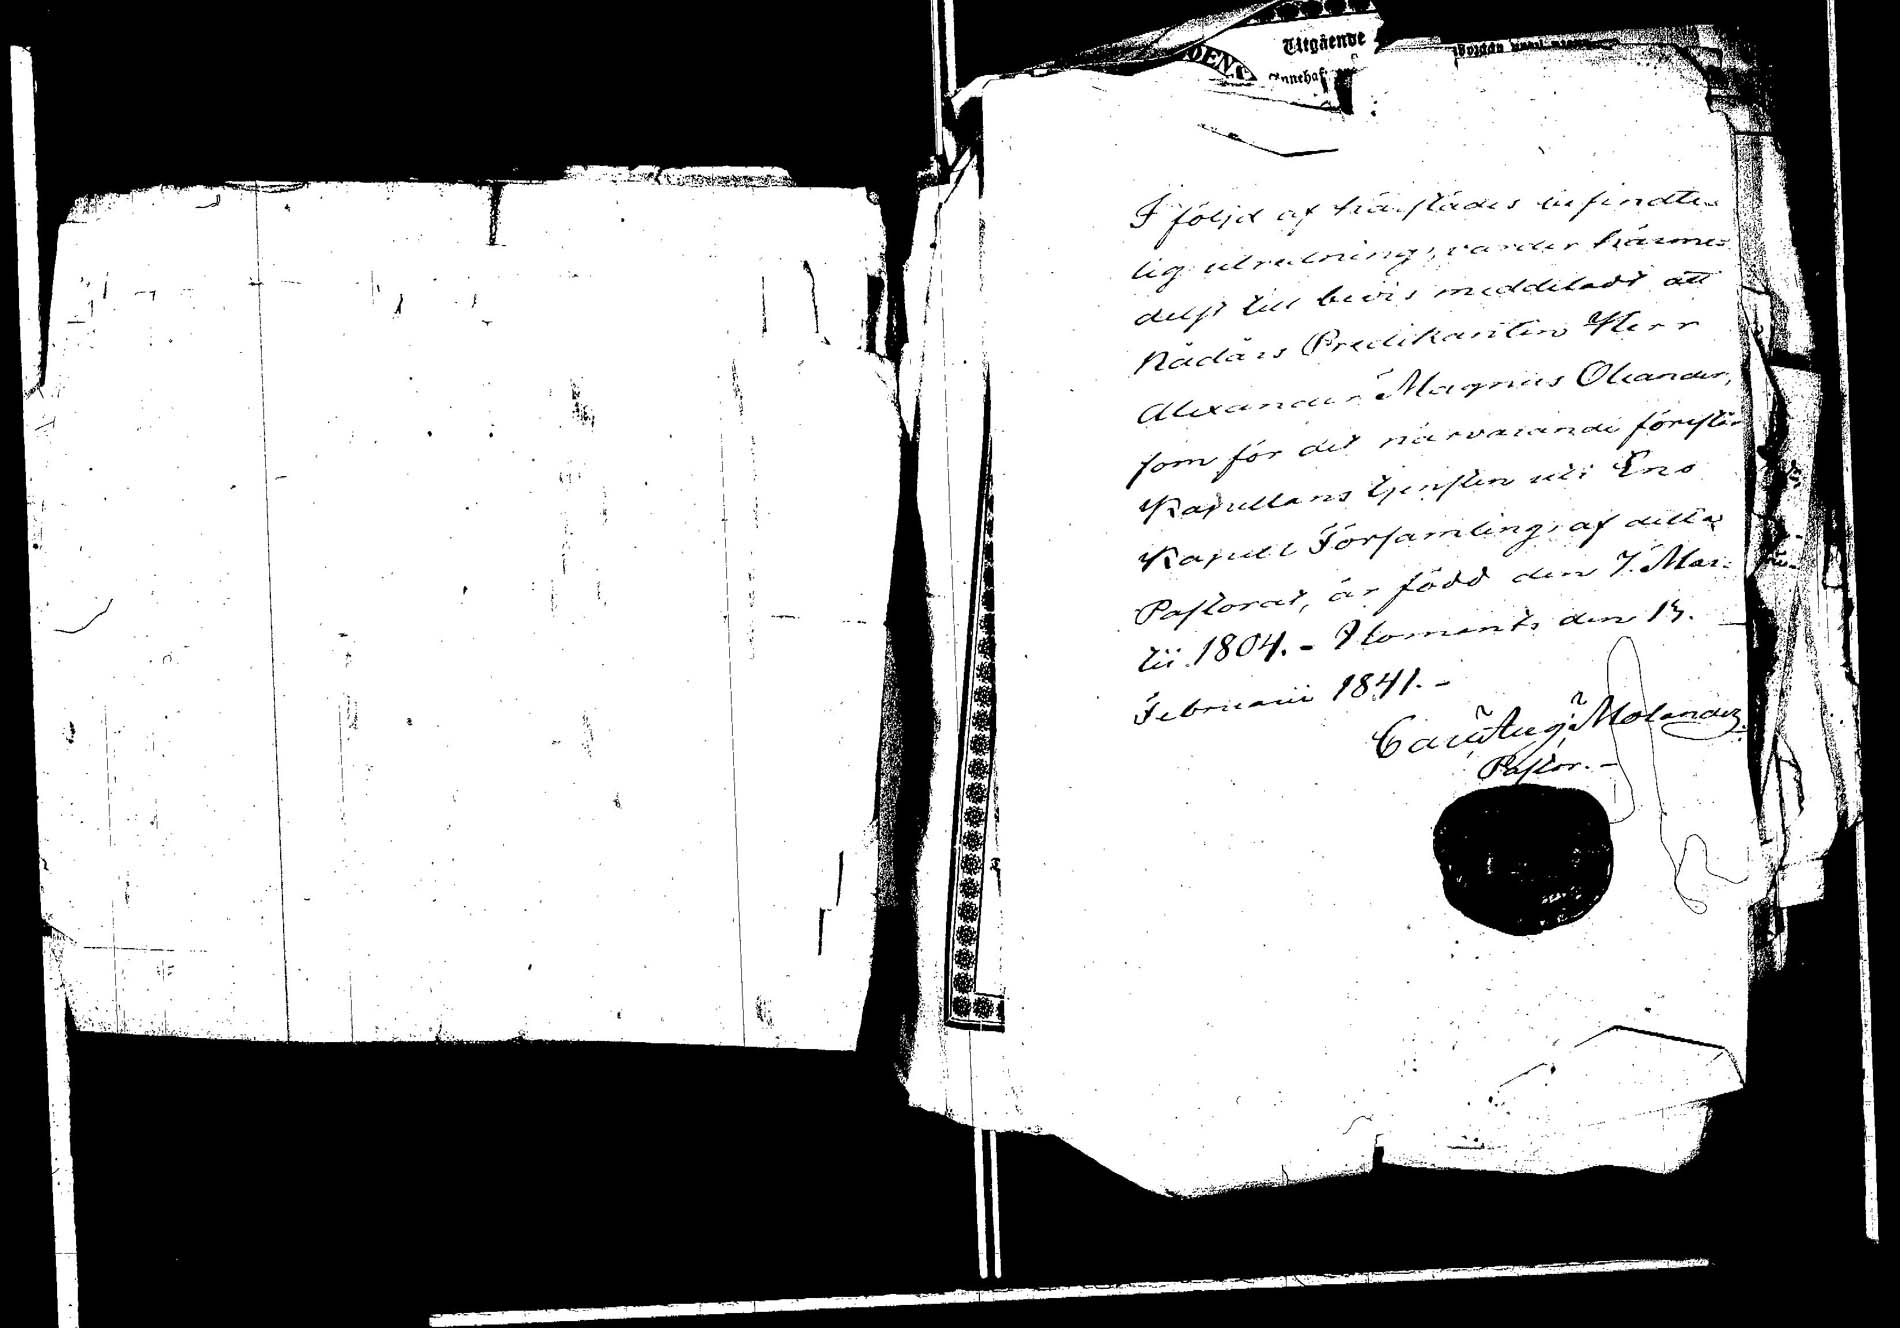 Utgående
DENS
Innehaf
I följd af härstädes befindte-
lig utredning, varder härme-
delst till bevis meddeladt att
Nådårs Predikanten Herr
Alexander Magnus Oleander,
som för det närvarande förestår
Kapellans tjensten uti Eno
Kapell Församling, af detta
Pastorat, är född den 7. Mar-
tii 1804. - Ilomants den 13.
Februarii 1841. -
Molander
Pastor. -